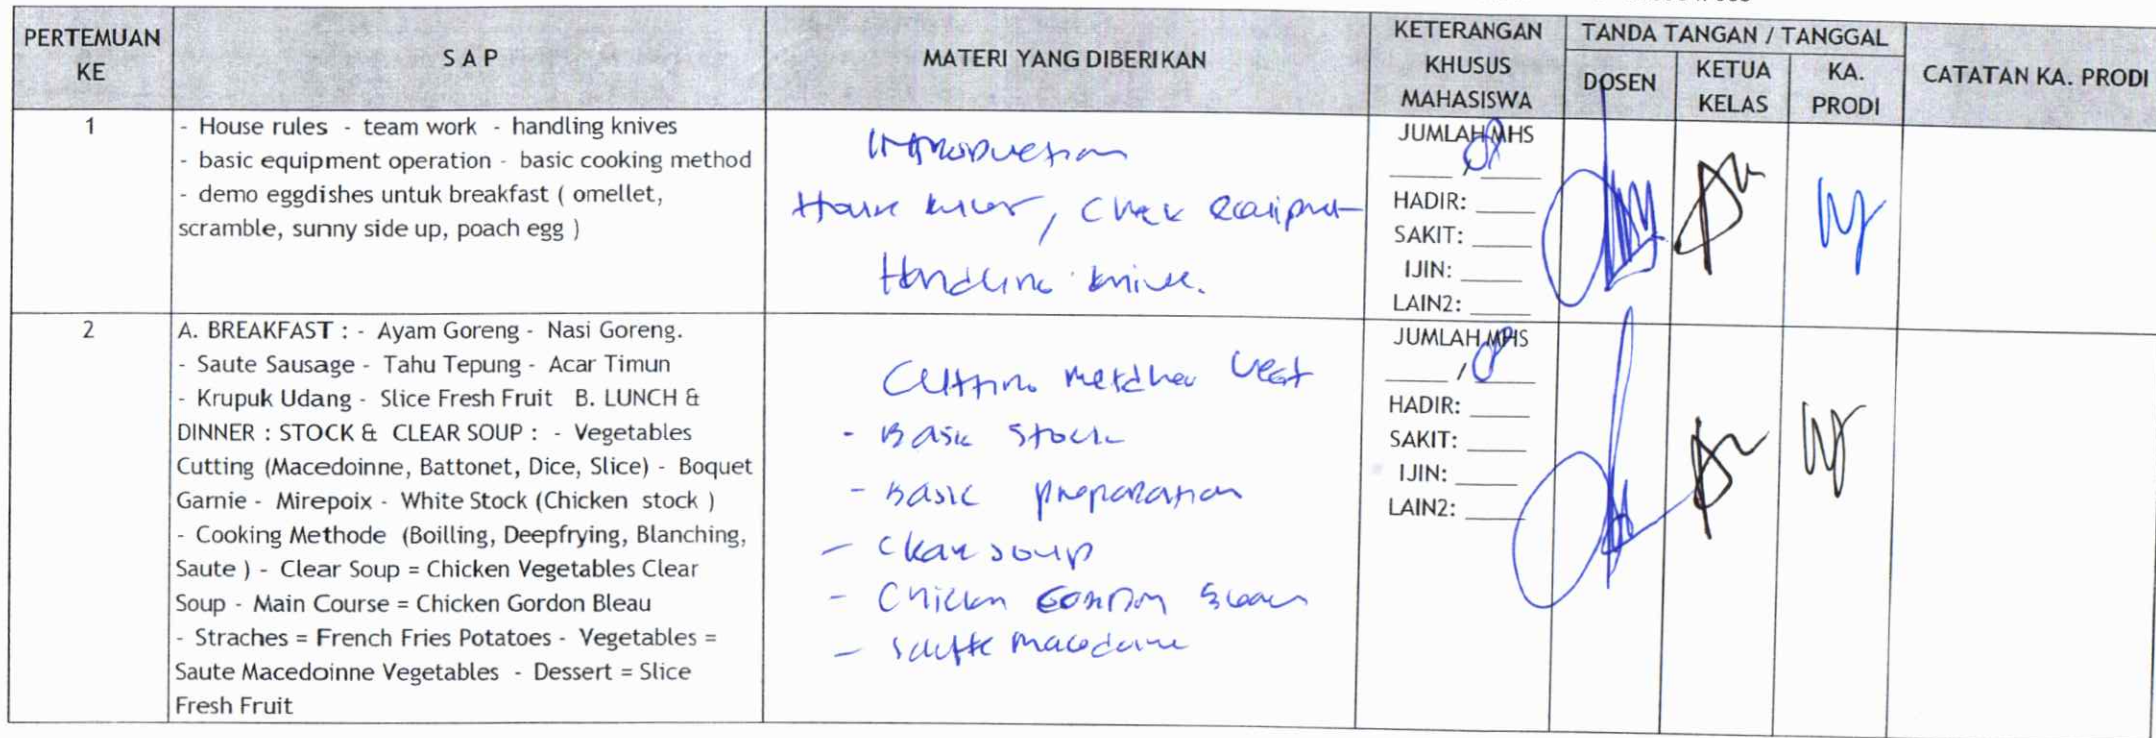 PERTEMUAN KE
S A P
MATERI YANG DIBERIKAN
KETERANGAN KHUSUS MAHASISWA
TANDA TANGAN / TANGGAL
DOSEN
KETUA KELAS
KA. PRODI
CATATAN KA. PRODI
1
- House rules - team work - handling knives
- basic equipment operation - basic cooking method
- demo eggdishes untuk breakfast ( omellet,
scramble, sunny side up, poach egg )
Introduction
House
Handling knive.
JUMLAH MHS
/
HADIR:
SAKIT:
IJIN:
LAIN2:
2
A. BREAKFAST : - Ayam Goreng - Nasi Goreng.
- Saute Sausage - Tahu Tepung - Acar Timun
- Krupuk Udang - Slice Fresh Fruit B. LUNCH &
DINNER : STOCK & CLEAR SOUP : - Vegetables
Cutting (Macedoinne, Battonet, Dice, Slice) - Boquet
Garnie - Mirepoix - White Stock (Chicken stock )
- Cooking Methode (Boilling, Deepfrying, Blanching,
Saute ) - Clear Soup = Chicken Vegetables Clear
Soup - Main Course = Chicken Gordon Bleau
- Straches = French Fries Potatoes - Vegetables =
Saute Macedoinne Vegetables - Dessert = Slice
Fresh Fruit
Cutting
- Basic Stock
- Basic preparation
- Clear soup
- Chicken Gordon
- Saute Macedoine
JUMLAH MHS
/
HADIR:
SAKIT:
IJIN:
LAIN2: